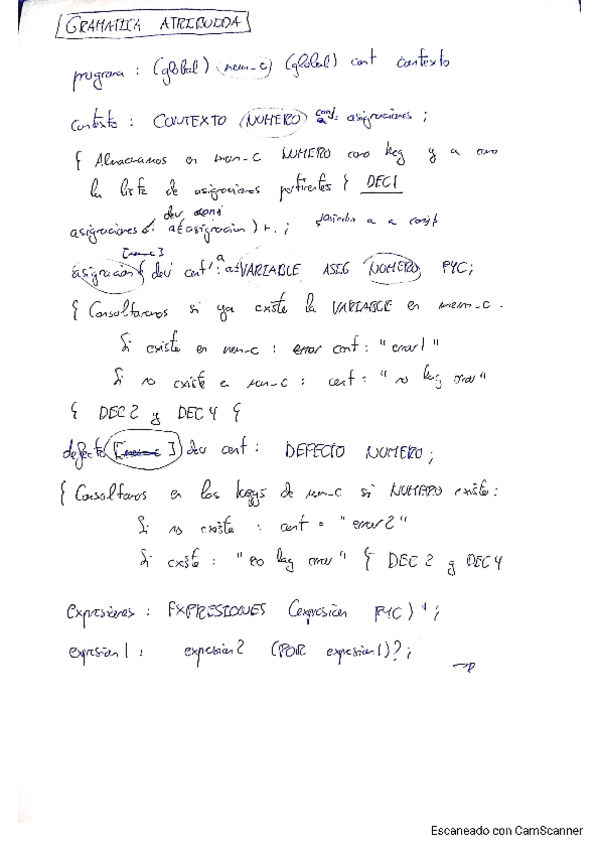 GRAMATICA ATRIBUIDA
programa : (global) mem_c (global) cont contexto
contexto : CONTEXTO NUMERO asignaciones ;
{ Almacenamos en mem_c NUMERO como key y a
la lista de asignaciones pertinentes { DEC1
dev
asignaciones (asignacion)+ ;
asignacion dev VARIABLE ASIG NUMERO PYC ;
{ Consultamos si ya existe la VARIABLE en mem_c .
Si existe en mem_c : error cont : "error1"
Si no existe en mem_c : cont = "no hay error"
{ DEC 2 y DEC 4 {
defecto dev cont : DEFECTO NUMERO ;
{ Consultamos en los keys de mem_c si NUMERO existe :
Si no existe : cont = "error2"
Si existe : "no hay error" { DEC 2 y DEC 4
Expresiones : EXPRESIONES (expresion PYC)+ ;
expresion1 : expresion2 (POR expresion1)? ;
Escaneado con CamScanner